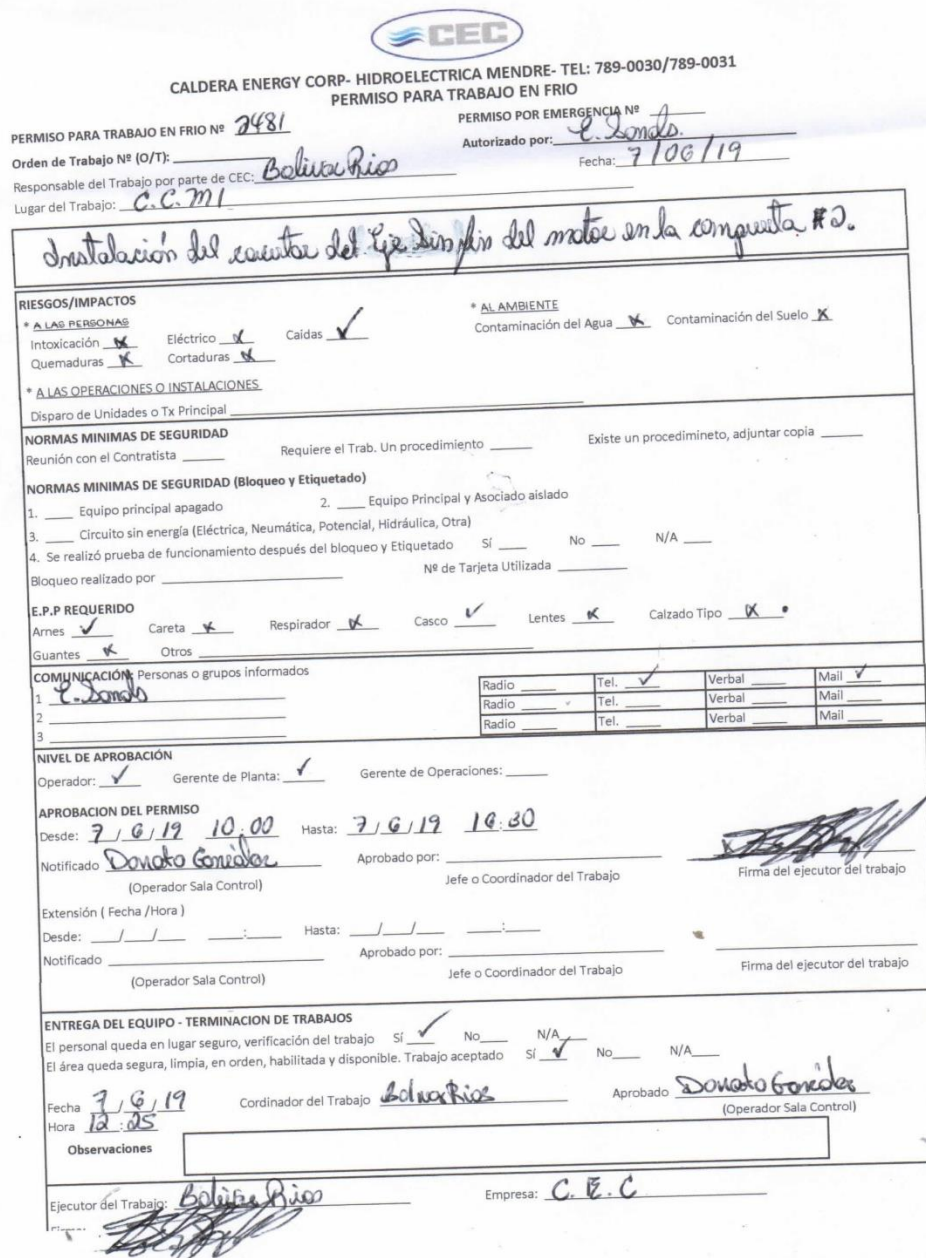 CEC
CALDERA ENERGY CORP- HIDROELECTRICA MENDRE- TEL: 789-0030/789-0031
PERMISO PARA TRABAJO EN FRIO
PERMISO PARA TRABAJO EN FRIO Nº 2481 PERMISO POR EMERGENCIA Nº
Orden de Trabajo Nº (O/T): Autorizado por:
Responsable del Trabajo por parte de CEC: Bolivar Rios Fecha: 7/06/19
Lugar del Trabajo: C.C.M1
Instalación del del Eje Sin fin del motor en la compuerta #2.
RIESGOS/IMPACTOS
* A LAS PERSONAS * AL AMBIENTE
Intoxicación x Eléctrico x Caidas ✓ Contaminación del Agua x Contaminación del Suelo x
Quemaduras x Cortaduras x
* A LAS OPERACIONES O INSTALACIONES
Disparo de Unidades o Tx Principal
NORMAS MINIMAS DE SEGURIDAD
Reunión con el Contratista Requiere el Trab. Un procedimiento Existe un procedimineto, adjuntar copia
NORMAS MINIMAS DE SEGURIDAD (Bloqueo y Etiquetado)
1. Equipo principal apagado 2. Equipo Principal y Asociado aislado
3. Circuito sin energía (Eléctrica, Neumática, Potencial, Hidráulica, Otra)
4. Se realizó prueba de funcionamiento después del bloqueo y Etiquetado Sí No N/A
Bloqueo realizado por Nº de Tarjeta Utilizada
E.P.P REQUERIDO
Arnes ✓ Careta x Respirador x Casco ✓ Lentes x Calzado Tipo x
Guantes x Otros
COMUNICACIÓN: Personas o grupos informados
1 Radio Tel. ✓ Verbal Mail ✓
2 Radio Tel. Verbal Mail
3 Radio Tel. Verbal Mail
NIVEL DE APROBACIÓN
Operador: ✓ Gerente de Planta: ✓ Gerente de Operaciones:
APROBACION DEL PERMISO
Desde: 7/6/19 10:00 Hasta: 7/6/19 16:30
Notificado Donato González Aprobado por:
(Operador Sala Control) Jefe o Coordinador del Trabajo Firma del ejecutor del trabajo
Extensión ( Fecha /Hora )
Desde: / / : Hasta: / / :
Notificado Aprobado por:
(Operador Sala Control) Jefe o Coordinador del Trabajo Firma del ejecutor del trabajo
ENTREGA DEL EQUIPO - TERMINACION DE TRABAJOS
El personal queda en lugar seguro, verificación del trabajo Sí ✓ No N/A
El área queda segura, limpia, en orden, habilitada y disponible. Trabajo aceptado Sí ✓ No N/A
Fecha 7/6/19 Cordinador del Trabajo Bolivar Rios Aprobado Donato González
Hora 12:25 (Operador Sala Control)
Observaciones
Ejecutor del Trabajo: Bolivar Rios Empresa: C.E.C